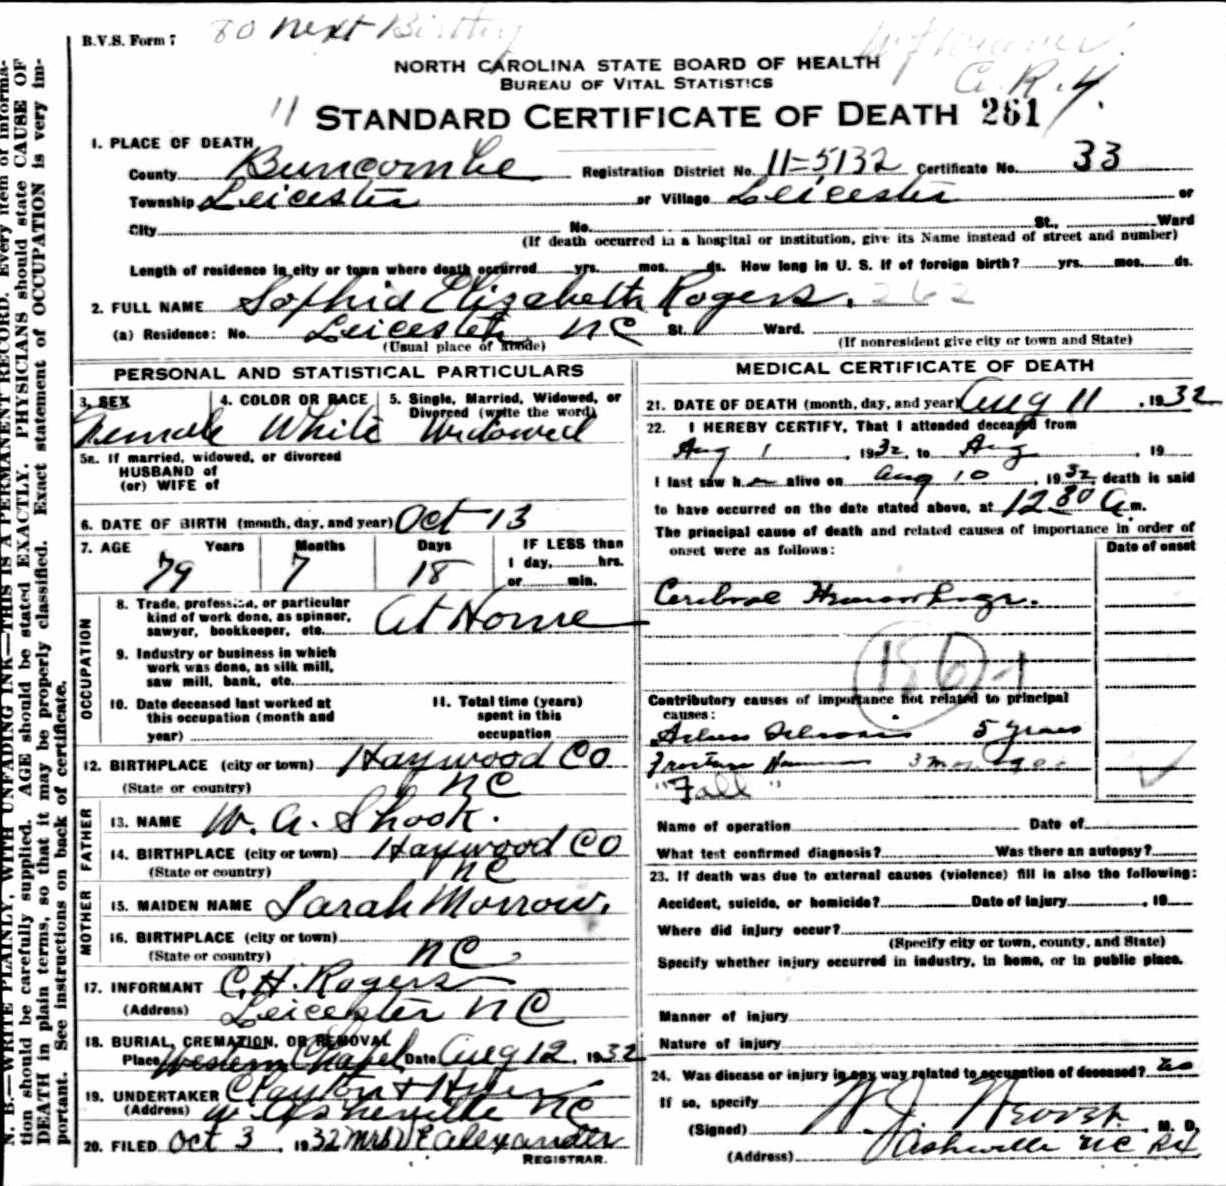 B.V.S. Form 7
80 next Birthday
NORTH CAROLINA STATE BOARD OF HEALTH
BUREAU OF VITAL STATISTICS
C. R. 4.
11 STANDARD CERTIFICATE OF DEATH 261
1. PLACE OF DEATH
County Buncombe Registration District No. 11-5132 Certificate No. 33
Township Leicester or Village Leicester or
City No. St., Ward
(If death occurred in a hospital or institution, give its Name instead of street and number)
Length of residence in city or town where death occurred yrs. mos. ds. How long in U. S. if of foreign birth? yrs. mos. ds.
2. FULL NAME Sophia Elizabeth Rogers. 262
(a) Residence: No. Leicester NC St. Ward.
(Usual place of abode) (If nonresident give city or town and State)
PERSONAL AND STATISTICAL PARTICULARS
3. SEX 4. COLOR OR RACE 5. Single, Married, Widowed, or Divorced (write the word)
Female White Widowed
5a. If married, widowed, or divorced
HUSBAND of
(or) WIFE of
6. DATE OF BIRTH (month, day, and year) Oct 13
7. AGE Years Months Days IF LESS than
1 day, hrs.
79 7 18 or min.
OCCUPATION
8. Trade, profession, or particular
kind of work done, as spinner,
sawyer, bookkeeper, etc. At Home
9. Industry or business in which
work was done, as silk mill,
saw mill, bank, etc.
10. Date deceased last worked at
this occupation (month and
year)
11. Total time (years)
spent in this
occupation
12. BIRTHPLACE (city or town) Haywood Co
(State or country) NC
FATHER
13. NAME W. A. Shook.
14. BIRTHPLACE (city or town) Haywood Co
(State or country) NC
MOTHER
15. MAIDEN NAME Sarah Morrow.
16. BIRTHPLACE (city or town)
(State or country) NC
17. INFORMANT C. H. Rogers
(Address) Leicester NC
18. BURIAL, CREMATION, OR REMOVAL
Place Western Chapel Date Aug 12, 1932
19. UNDERTAKER Clayton +
(Address) W. Asheville NC
20. FILED Oct 3, 1932 Mrs V E Alexander
REGISTRAR.
MEDICAL CERTIFICATE OF DEATH
21. DATE OF DEATH (month, day, and year) Aug 11, 1932
22. I HEREBY CERTIFY, That I attended deceased from
Aug 1, 1932, to Aug, 19
I last saw her alive on Aug 10, 1932, death is said
to have occurred on the date stated above, at 12 30 A.m.
The principal cause of death and related causes of importance in order of
onset were as follows: Date of onset
Cerebral Hemorrhage.
186-1
Contributory causes of importance not related to principal
causes:
5 years
3 mos ago
"Fall"
Name of operation Date of
What test confirmed diagnosis? Was there an autopsy?
23. If death was due to external causes (violence) fill in also the following:
Accident, suicide, or homicide? Date of injury, 19
Where did injury occur?
(Specify city or town, county, and State)
Specify whether injury occurred in industry, in home, or in public place.
Manner of injury
Nature of injury
24. Was disease or injury in any way related to occupation of deceased? no
If so, specify
(Signed) W. J. M. D.
(Address) Asheville NC R4
N. B.—WRITE PLAINLY, WITH UNFADING INK—THIS IS A PERMANENT RECORD. Every item of informa-
tion should be carefully supplied. AGE should be stated EXACTLY. PHYSICIANS should state CAUSE OF
DEATH in plain terms, so that it may be properly classified. Exact statement of OCCUPATION is very im-
portant. See instructions on back of certificate.